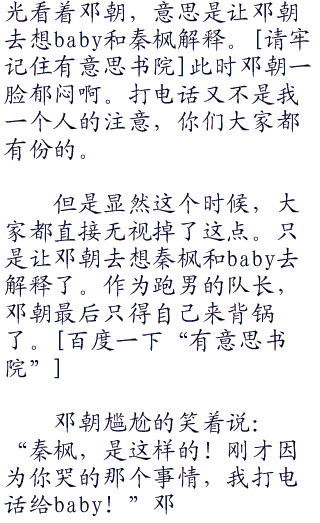 光看着邓朝，意思是让邓朝
去想baby和秦枫解释。[请牢
记住有意思书院]此时邓朝一
脸郁闷啊。打电话又不是我
一个人的注意，你们大家都
有份的。
但是显然这个时候，大
家都直接无视掉了这点。只
是让邓朝去想秦枫和baby去
解释了。作为跑男的队长，
邓朝最后只得自己来背锅
了。[百度一下“有意思书
院”]
邓朝尴尬的笑着说：
“秦枫，是这样的！刚才因
为你哭的那个事情，我打电
话给baby！”邓